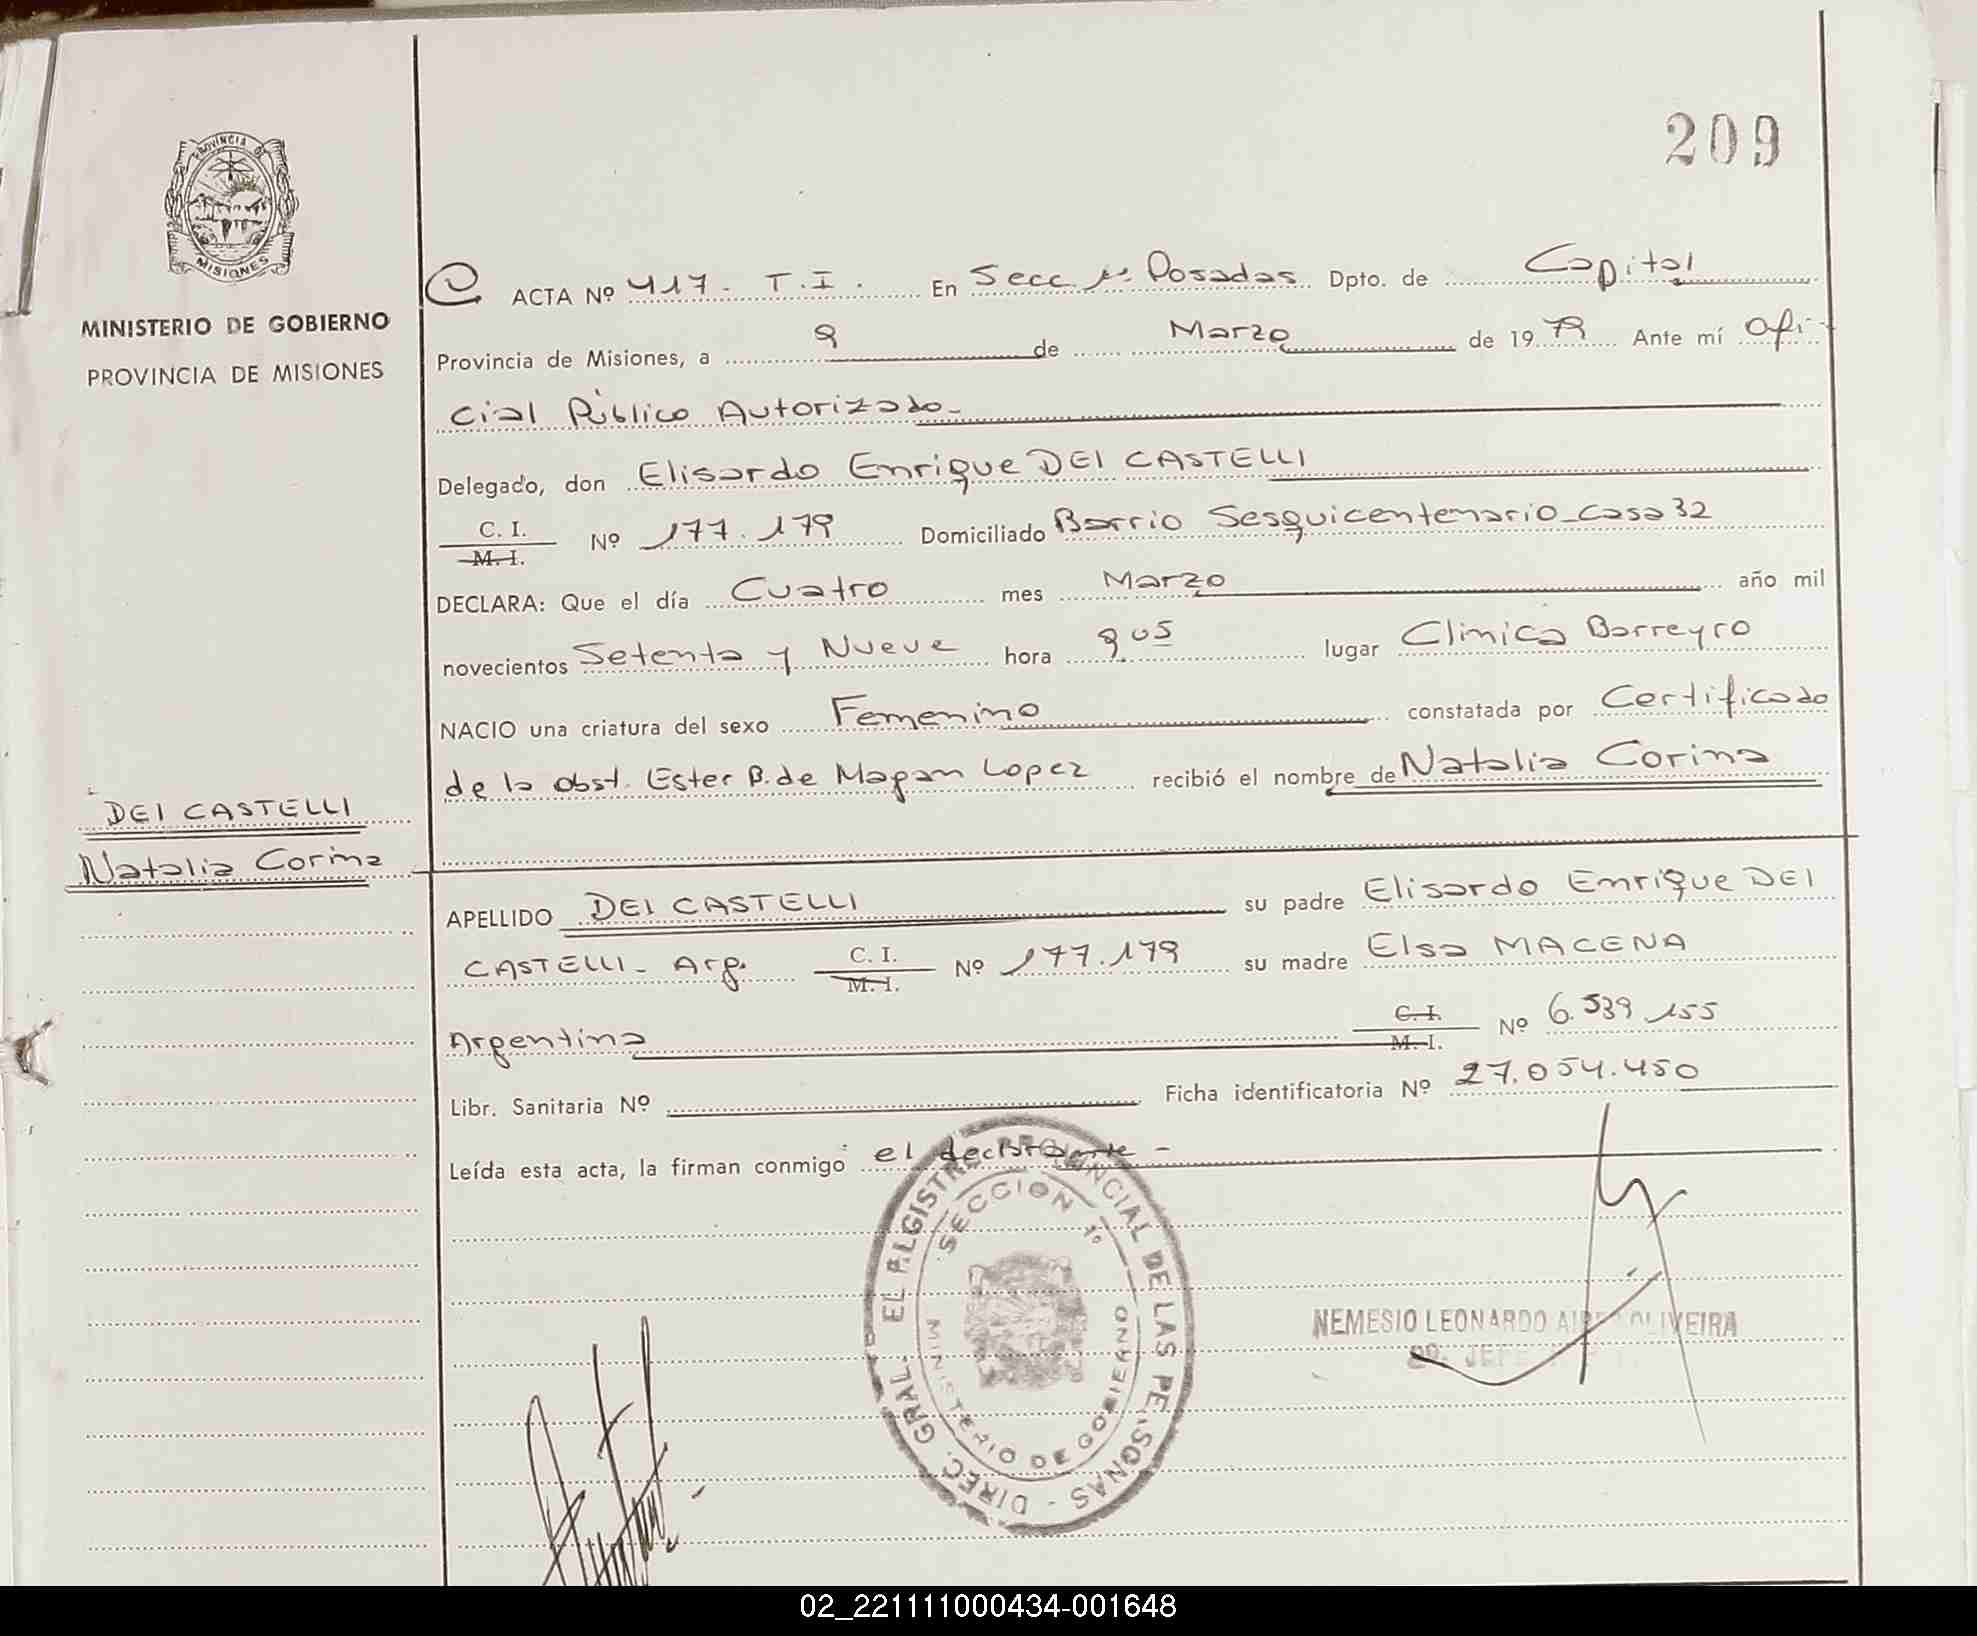 209
PROVINCIA DE
MISIONES
MINISTERIO DE GOBIERNO
PROVINCIA DE MISIONES
ACTA Nº 417. T.I. En Secc 1ª. Posadas Dpto. de Capital
Provincia de Misiones, a 9 de Marzo de 1979 Ante mí Ofi-
cial Público Autorizado-
Delegado, don Elisardo Enrique DEI CASTELLI
C. I.
M. I. Nº 177.179 Domiciliado Barrio Sesquicentenario-casa 32
DECLARA: Que el día Cuatro mes Marzo año mil
novecientos Setenta y Nueve hora 9 05 lugar Clinica Barreyro
NACIO una criatura del sexo Femenino constatada por Certificado
de la obst. Ester B. de Magan Lopez recibió el nombre de Natalia Corina
DEI CASTELLI
Natalia Corina
APELLIDO DEI CASTELLI su padre Elisardo Enrique DEI
CASTELLI - Arg. C. I.
M. I. Nº 177.179 su madre Elsa MACENA
Argentina C. I.
M. I. Nº 6.539 155
Libr. Sanitaria Nº Ficha identificatoria Nº 27.054.450
Leída esta acta, la firman conmigo el declarante -
DIREC. GRAL. EL REGISTRO PROVINCIAL DE LAS PERSONAS -
SECCION 1º
MINISTERIO DE GOBIERNO
NEMESIO LEONARDO OLIVEIRA
JEFE
02_221111000434-001648